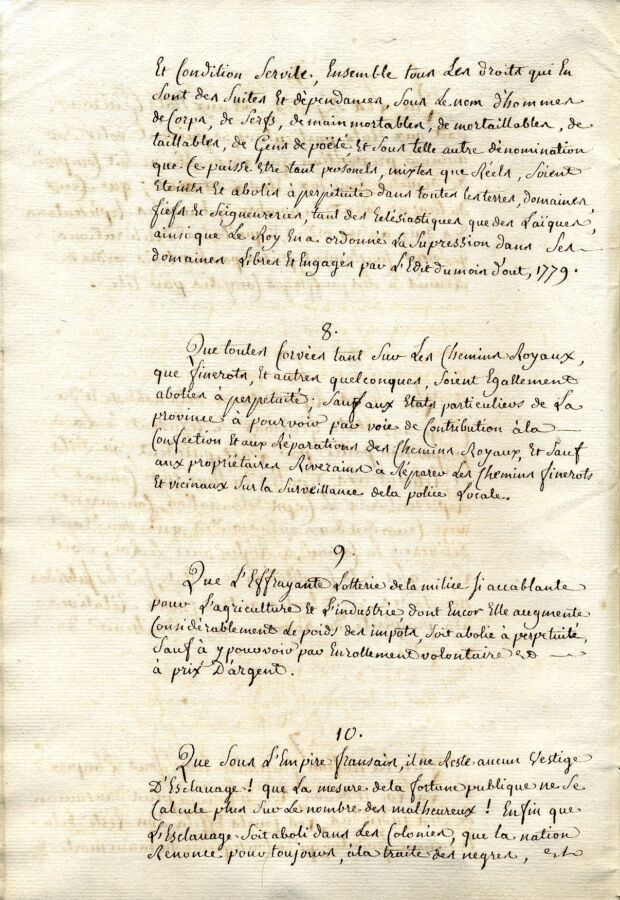 Et Condition Servile, Ensemble tous Les droits qui En
Sont des Suites Et dépendances, Sous Le nom d'hommes
de Corps, de Serfs, de main mortables, de mortaillables, de
taillables, de Gens de poëté Et Sous telle autre dénomination
que Ce puisse Etre tant personels, mixtes que Réels, Soient
Eteints Et abolis à perpétuité dans toutes les terres, domaines,
fiefs Et Seigneureries, tant des Eclésiastiques que des Laïques,
ainsi que Le Roy En a ordonné La Supression dans Ses
domaines Libres Et Engagés par L'Edit du mois d'out, 1779.
8.
Que toutes Corvées tant Sur Les Chemins Royaux,
que finerots, Et autres quelconques, Soient Egallement
abolies à perpetuité; Sauf aux Etats particuliers de La
province à pourvoir par voie de Contribution à la
Confection Et aux Réparations des Chemins Royaux, Et Sauf
aux propriétaires Riverains à Réparer Les Chemins finerots
Et vicinaux Sur La Surveillance de la police Locale.
9.
Que L'Effrayante Lotterie de la milice Si accablante
pour L'agriculture Et L'industrie dont Encor Elle augmente
Considérablement Le poids des impôts, Soit abolie à perpetuité,
Sauf à y pouvoir par Enrollement volontaire et
à prix D'argent.
10.
Que Sous L'Empire fransais, il ne Reste aucun Vestige
D'Esclavage! que La mesure de la fortune publique ne Se
Calcule plus Sur Le nombre des malheureux! Enfin que
L'Esclavage Soit aboli dans Les Colonies, que la nation
Renonce pour toujours, à la traite des negres, et